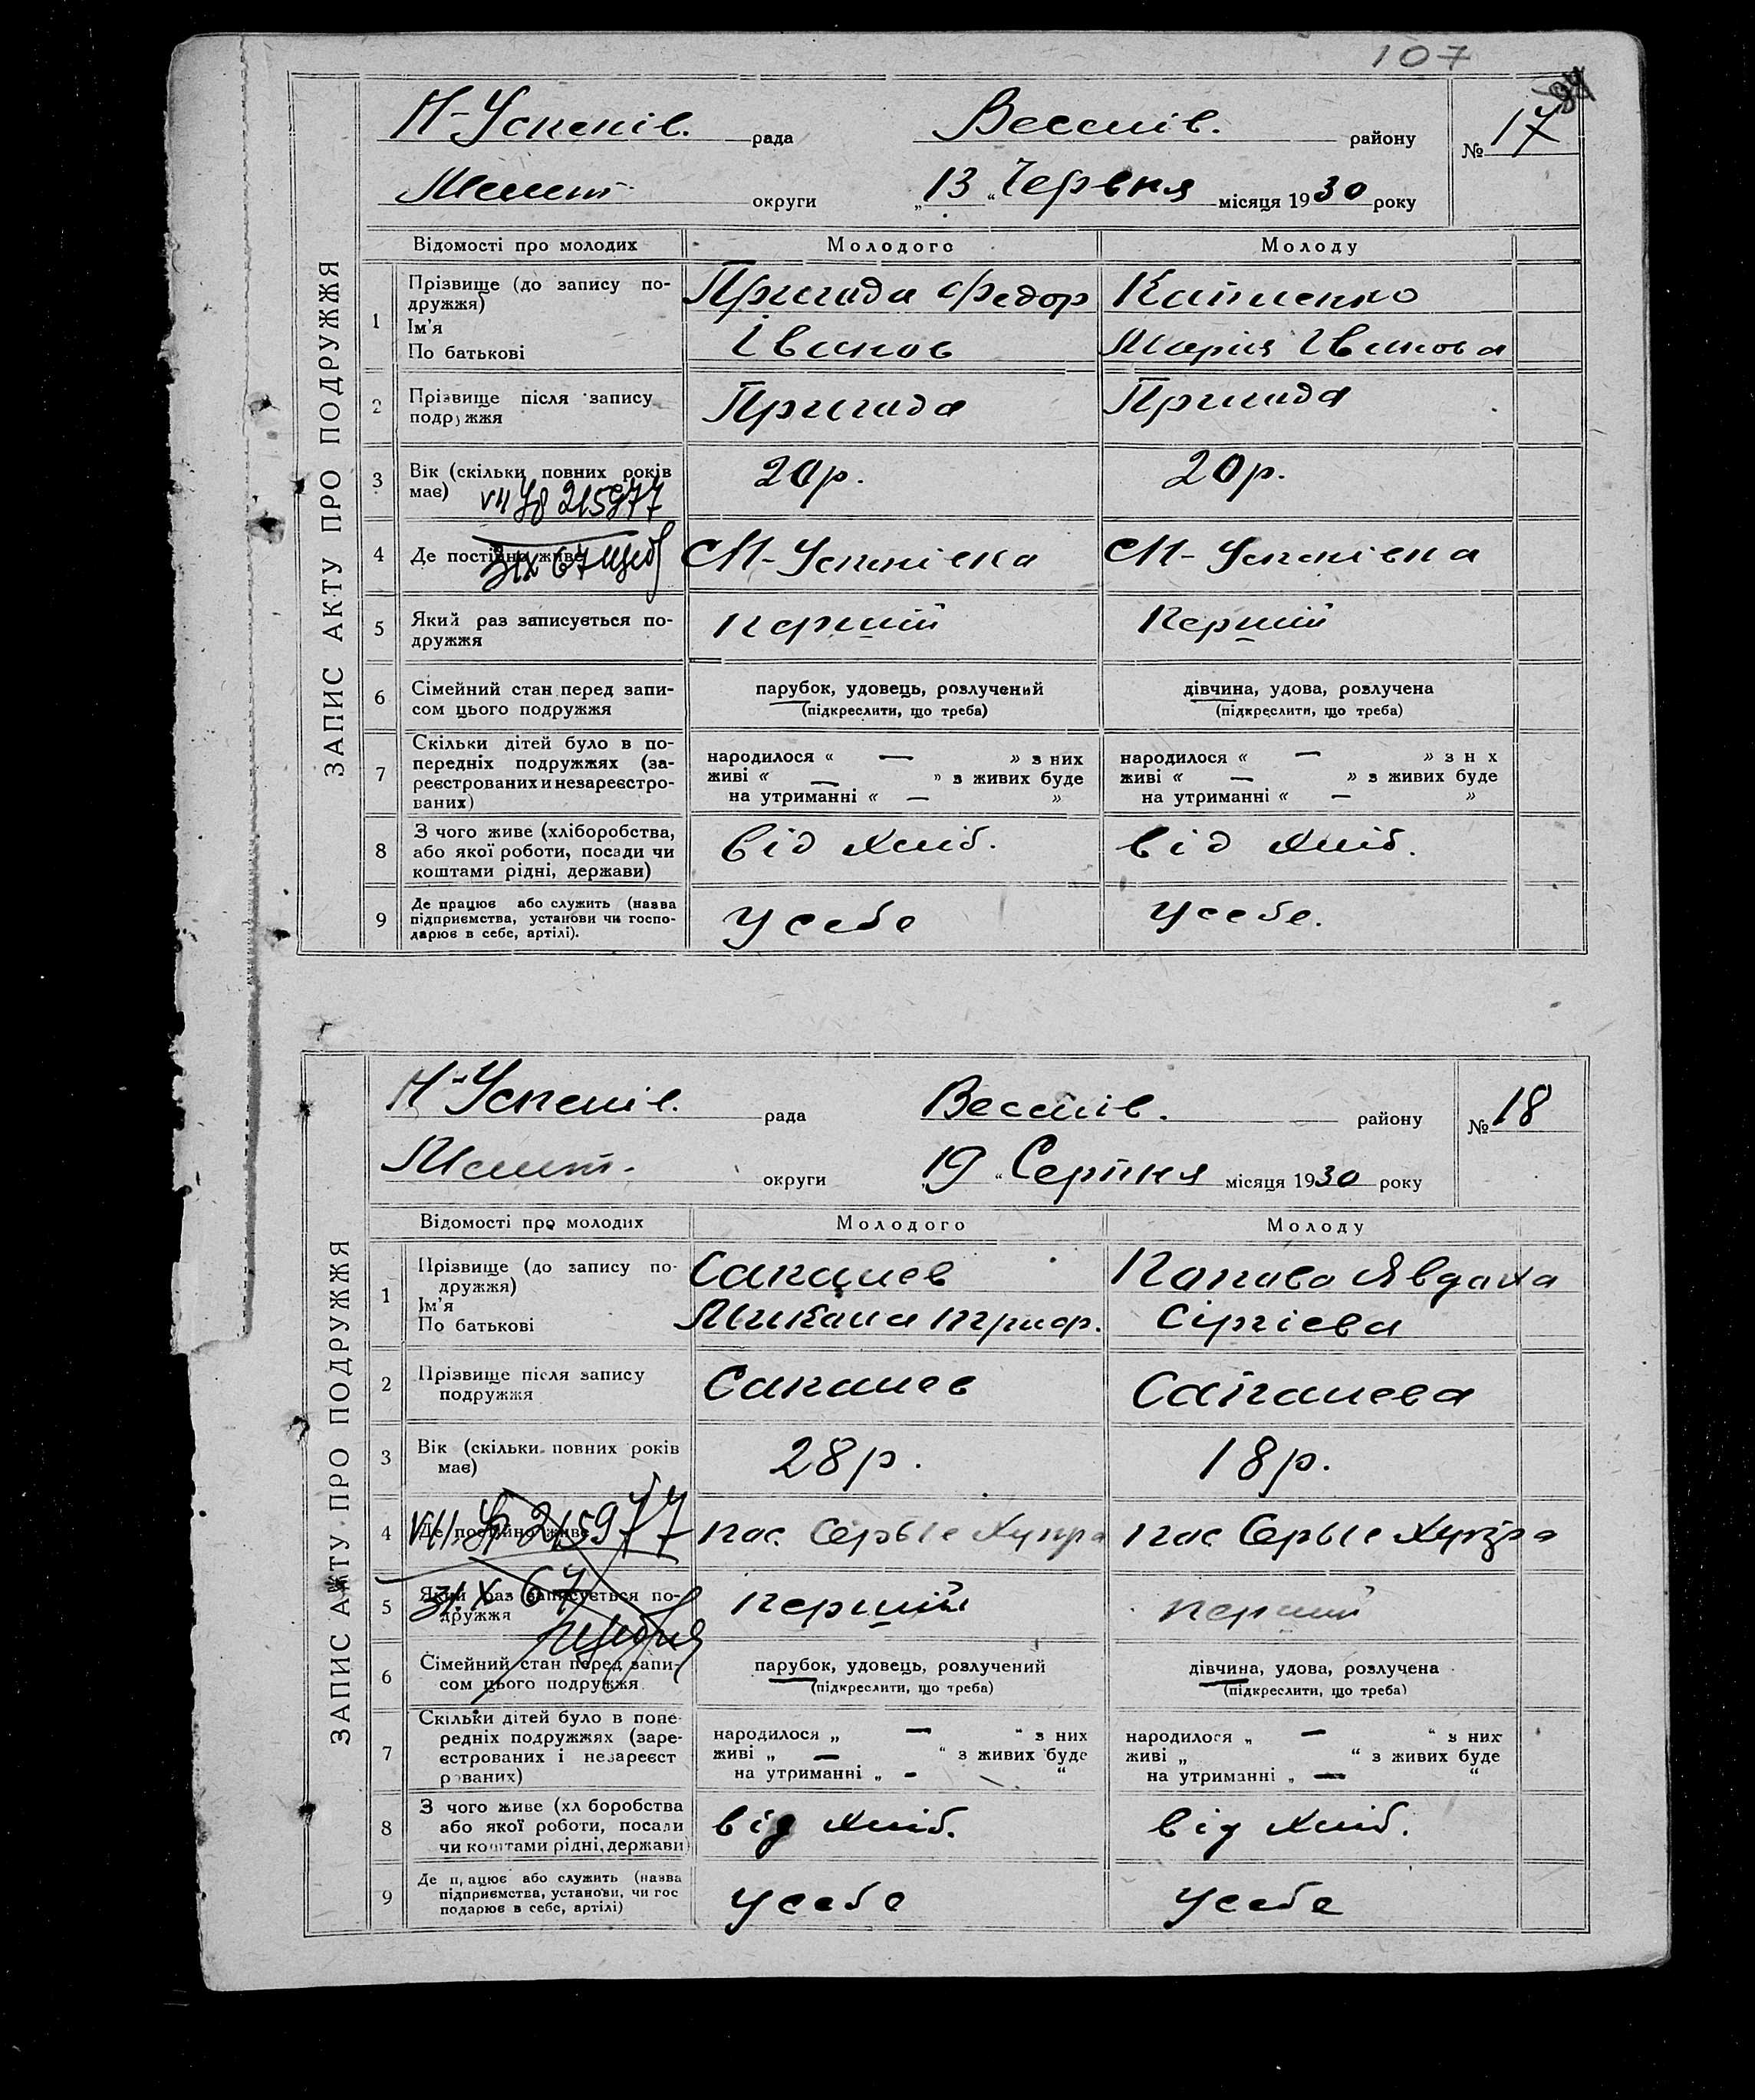 107
ЗАПИС АКТУ ПРО ПОДРУЖЖЯ
Н-Успенів. рада Веселів. району № 17
Мелит. округи „13“ Червня місяця 1930 року
Відомості про молодих Молодого Молоду
1 Прізвище (до запису подружжя) Ім'я По батькові
Федор Іванов
Марія Іванова
2 Прізвище після запису подружжя
3 Вік (скільки повних років має) 20р. 20р.
VII 215977
4 Де постійно живе Н-Успенівка Н-Успенівка
5 Який раз записується подружжя перший Перший
6 Сімейний стан перед записом цього подружжя парубок, удовець, розлучений (підкреслити, що треба) дівчина, удова, розлучена (підкреслити, що треба)
7 Скільки дітей було в попередніх подружжях (зареєстрованих и незареєстрованих) народилося « — » з них живі « — » з живих буде на утриманні « — » народилося « — » з н х живі « — » з живих буде на утриманні « — »
8 З чого живе (хліборобства, або якої роботи, посади чи коштами рідні, держави) від хліб. від хліб.
9 Де працює або служить (назва підприємства, установи чи господарює в себе, артілі). у себе у себе.
ЗАПИС АКТУ ПРО ПОДРУЖЖЯ
Н-Успенів. рада Веселів. району № 18
Мелит. округи „19“ Серпня місяця 1930 року
Відомості про молодих Молодого Молоду
1 Прізвище (до запису подружжя) Ім'я По батькові
Сапацлев Попова Явдоха
Микола Триф. Сіргієва
2 Прізвище після запису подружжя Сапалев Сапалева
3 Вік (скільки повних років має) 28р. 18р.
VII 215977
4 Де постійно живе пос. Серые Хутора пос Серые Хутора
31.X-67
5 Який раз записується подружжя перший перший
6 Сімейний стан перед записом цього подружжя парубок, удовець, розлучений (підкреслити, що треба) дівчина, удова, розлучена (підкреслити, що треба)
7 Скільки дітей було в попередніх подружжях (зареєстрованих і незареєст рованих) народилося „ — “ з них живі „ — “ з живих буде на утриманні „ — “ народилося „ — “ з них живі „ “ з живих буде на утриманні „ — “
8 З чого живе (хл боробства або якої роботи, посади чи коштами рідні, держави) від хліб. від хліб.
9 Де працює або служить (назва підприємства, установи, чи гос подарює в себе, артілі) у себе у себе